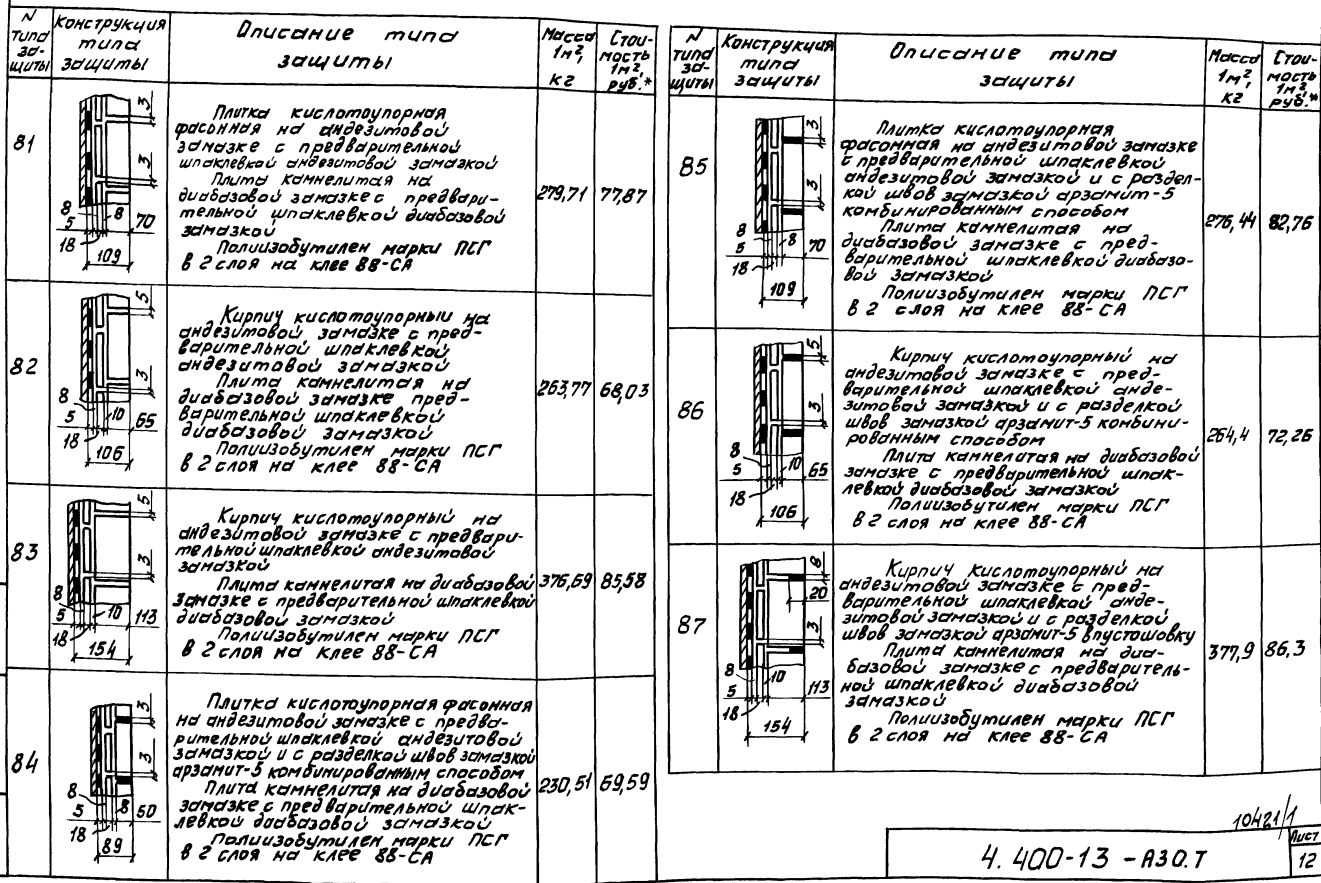 N типа защиты
Конструкция типа защиты
Описание типа защиты
Масса 1м², кг
Стоимость 1м², руб.*
81
3
3
8
5
18
8
70
109
Плитка кислотоупорная
фасонная на андезитовой
замазке с предварительной
шпаклевкой андезитовой замазкой
Плита камнелитая на
диабазовой замазке с предвари-
тельной шпаклевкой диабазовой
замазкой
Полиизобутилен марки ПСГ
в 2 слоя на клее 88-СА
279,71
77,87
82
5
3
8
5
18
10
65
106
Кирпич кислотоупорный на
андезитовой замазке с пред-
варительной шпаклевкой
андезитовой замазкой
Плита камнелитая на
диабазовой замазке пред-
варительной шпаклевкой
диабазовой замазкой
Полиизобутилен марки ПСГ
в 2 слоя на клее 88-СА
263,77
68,03
83
5
3
8
5
18
10
113
154
Кирпич кислотоупорный на
андезитовой замазке с предвари-
тельной шпаклевкой андезитовой
замазкой
Плита камнелитая на диабазовой
замазке с предварительной шпаклевкой
диабазовой замазкой
Полиизобутилен марки ПСГ
в 2 слоя на клее 88-СА
376,69
85,58
84
3
3
8
5
18
8
50
89
Плитка кислотоупорная фасонная
на андезитовой замазке с предва-
рительной шпаклевкой андезитовой
замазкой и с разделкой швов замазкой
арзамит-5 комбинированным способом
Плита камнелитая на диабазовой
замазке с предварительной шпак-
левкой диабазовой замазкой
Полиизобутилен марки ПСГ
в 2 слоя на клее 88-СА
230,51
69,59
N типа защиты
Конструкция типа защиты
Описание типа защиты
Масса 1м², кг
Стоимость 1м², руб.*
85
3
3
8
5
18
8
70
109
Плитка кислотоупорная
фасонная на андезитовой замазке
с предварительной шпаклевкой
андезитовой замазкой и с раздел-
кой швов замазкой арзамит-5
комбинированным способом
Плита камнелитая на
диабазовой замазке с пред-
варительной шпаклевкой диабазо-
вой замазкой
Полиизобутилен марки ПСГ
в 2 слоя на клее 88-СА
276,44
82,76
86
5
3
8
5
18
10
65
106
Кирпич кислотоупорный на
андезитовой замазке с пред-
варительной шпаклевкой анде-
зитовой замазкой и с разделкой
швов замазкой арзамит-5 комбини-
рованным способом
Плита камнелитая на диабазовой
замазке с предварительной шпак-
левкой диабазовой замазкой
Полиизобутилен марки ПСГ
в 2 слоя на клее 88-СА
264,4
72,26
87
8
20
3
8
5
18
10
113
154
Кирпич кислотоупорный на
андезитовой замазке с пред-
варительной шпаклевкой анде-
зитовой замазкой и с разделкой
швов замазкой арзамит-5 впустошовку
Плита камнелитая на диа-
базовой замазке с предваритель-
ной шпаклевкой диабазовой
замазкой
Полиизобутилен марки ПСГ
в 2 слоя на клее 88-СА
377,9
86,3
10421/1
4.400-13 - АЗО.Т
Лист
12